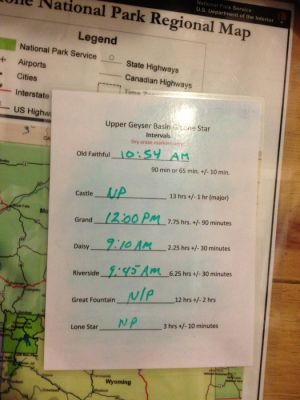 one National Park Regional Map
National Park Service
U.S. Department of the Interior
Legend
National Park Service
Airports
Cities
Interstate
US Highw
State Highways
Canadian Highways
Time
Upper Geyser Basin & Lone Star
Intervals
Dry erase markers only
Old Faithful 10:54 AM
90 min or 65 min. +/- 10 min.
Castle NP 13 hrs +/- 1 hr (major)
Grand 12:00 PM 7.75 hrs. +/- 90 minutes
Daisy 9:10 AM 2.25 hrs +/- 30 minutes
Riverside 9:45 AM 6.25 hrs +/- 30 minutes
Great Fountain N/P 12 hrs +/- 2 hrs
Lone Star NP 3 hrs +/- 10 minutes
Wyoming